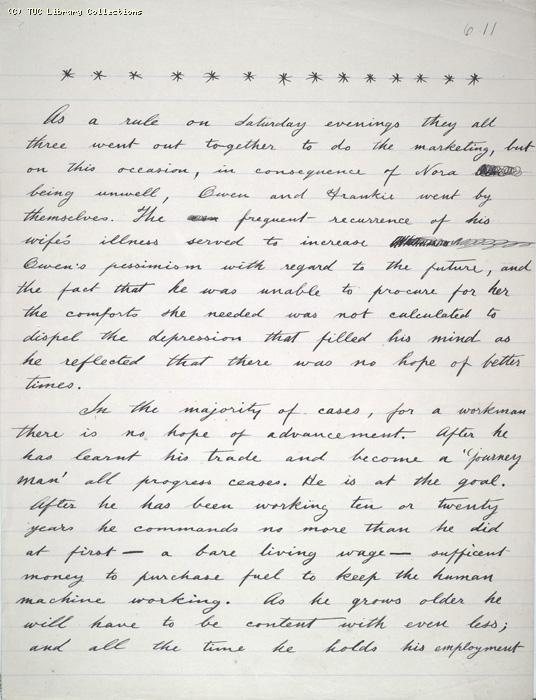 (C) TUC Library Collections
611
* * * * * * * * * * * * *
As a rule on Saturday evenings they all
three went out together to do the marketing, but
on this occasion, in consequence of Nora
being unwell, Owen and Frankie went by
themselves. The frequent recurrence of his
wife's illness served to increase
Owen's pessimism with regard to the future, and
the fact that he was unable to procure for her
the comforts she needed was not calculated to
dispel the depression that filled his mind as
he reflected that there was no hope of better
times.
In the majority of cases, for a workman
there is no hope of advancement. After he
has learnt his trade and become a 'journey
man' all progress ceases. He is at the goal.
After he has been working ten or twenty
years he commands no more than he did
at first — a bare living wage — sufficent
money to purchase fuel to keep the human
machine working. As he grows older he
will have to be content with even less;
and all the time he holds his employment